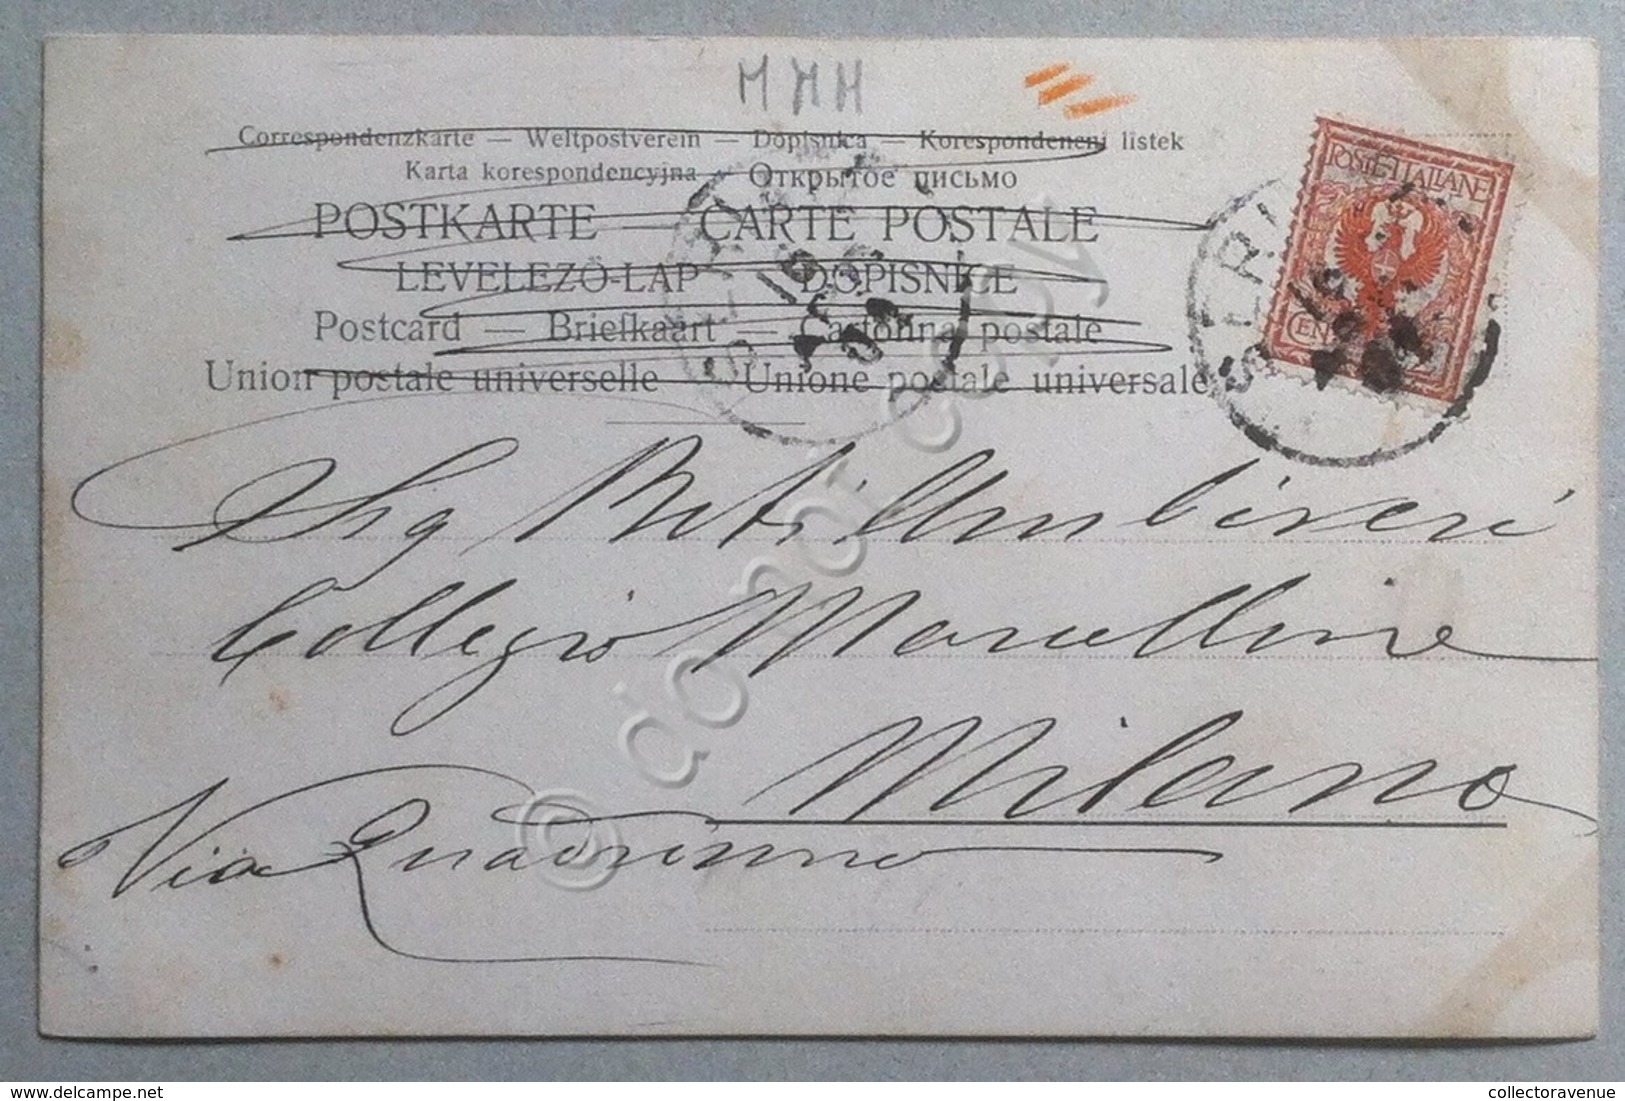 MHH
Correspondenzkarte — Weltpostverein — Dopisnica — Korespondencni listek
Karta korespondencyjna — Открытое письмо
POSTKARTE — CARTE POSTALE
LEVELEZŐ-LAP DOPISNICE
Postcard — Briefkaart — Cartolina postale
Union postale universelle — Unione postale universale
POSTE·ITALIANE
CEN 2
Sig
Collegio Marcelline
Milano
Via Quadronno
© donor copy
collectoravenue